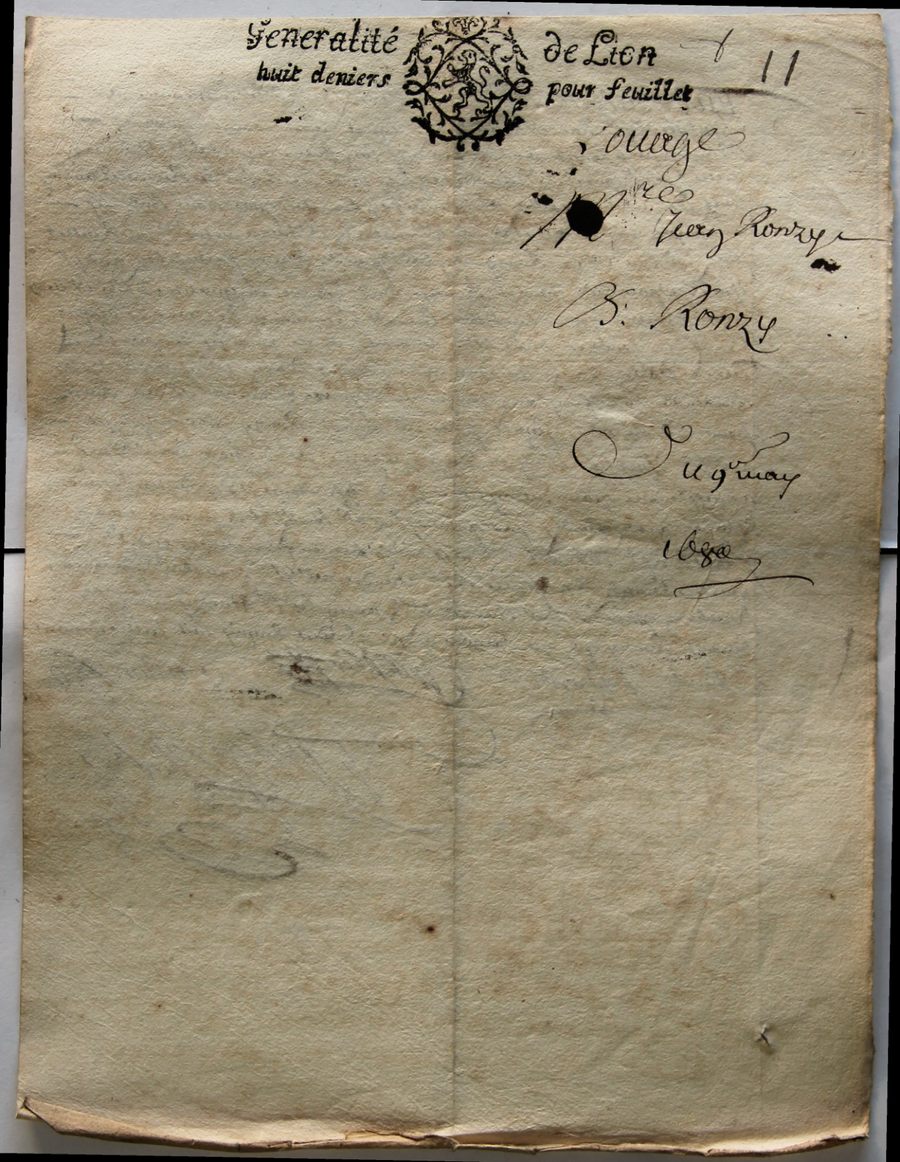 Generalité de Lion
huit deniers pour feuillet
11
Louage
Mre Jean Ronzy
B. Ronzy
Du 9e may